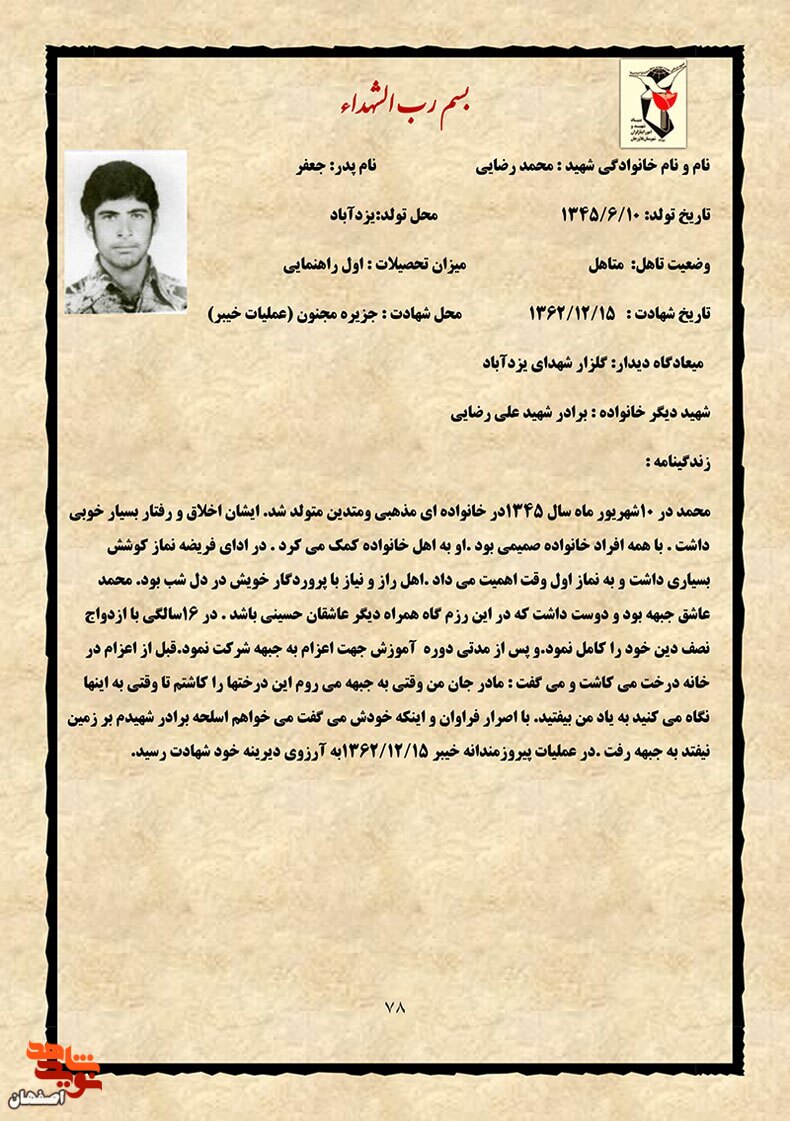 بسم رب الشهداء
نام و نام خانوادگی شهید : محمد رضایی نام پدر: جعفر
تاریخ تولد: ۱۳۴۵/۶/۱۰ محل تولد:یزدآباد
وضعیت تاهل: متاهل میزان تحصیلات : اول راهنمایی
تاریخ شهادت : ۱۳۶۲/۱۲/۱۵ محل شهادت : جزیره مجنون (عملیات خیبر)
میعادگاه دیدار: گلزار شهدای یزدآباد
شهید دیگر خانواده : برادر شهید علی رضایی
زندگینامه :
محمد در ۱۰شهریور ماه سال ۱۳۴۵در خانواده ای مذهبی ومتدین متولد شد. ایشان اخلاق و رفتار بسیار خوبی
داشت . با همه افراد خانواده صمیمی بود .او به اهل خانواده کمک می کرد . در ادای فریضه نماز کوشش
بسیاری داشت و به نماز اول وقت اهمیت می داد .اهل راز و نیاز با پروردگار خویش در دل شب بود. محمد
عاشق جبهه بود و دوست داشت که در این رزم گاه همراه دیگر عاشقان حسینی باشد . در ۱۶سالگی با ازدواج
نصف دین خود را کامل نمود.و پس از مدتی دوره آموزش جهت اعزام به جبهه شرکت نمود.قبل از اعزام در
خانه درخت می کاشت و می گفت : مادر جان من وقتی به جبهه می روم این درختها را کاشتم تا وقتی به اینها
نگاه می کنید به یاد من بیفتید. با اصرار فراوان و اینکه خودش می گفت می خواهم اسلحه برادر شهیدم بر زمین
نیفتد به جبهه رفت .در عملیات پیروزمندانه خیبر ۱۳۶۲/۱۲/۱۵به آرزوی دیرینه خود شهادت رسید.
۷۸
نوید شاهد
اصفهان